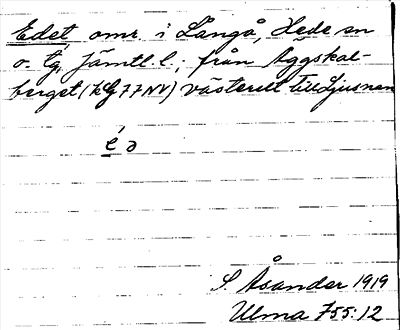 Edet omr. i Långå, Hede sn
o. tg, Jämtl. l.; från Äggskal-
berget (kG 77 NV) västerut till Ljusnan
é ə
S. Åsander 1919
Ulma 755:12